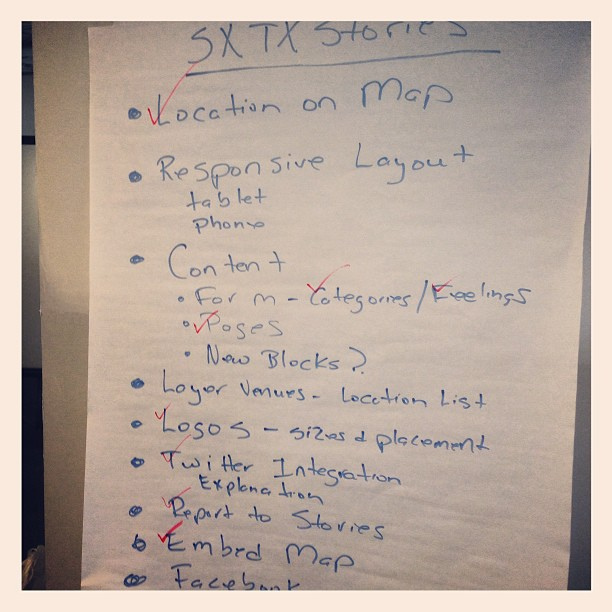 SXTX Stories
• Location on Map
• Responsive Layout
tablet
phone
• Content
• Form - Categories/Feelings
• Pages
• New Blocks?
• Layer Venues - Location List
• Logos - sizes & placement
• Twitter Integration
Explanation
• Report to Stories
• Embed Map
• Facebook